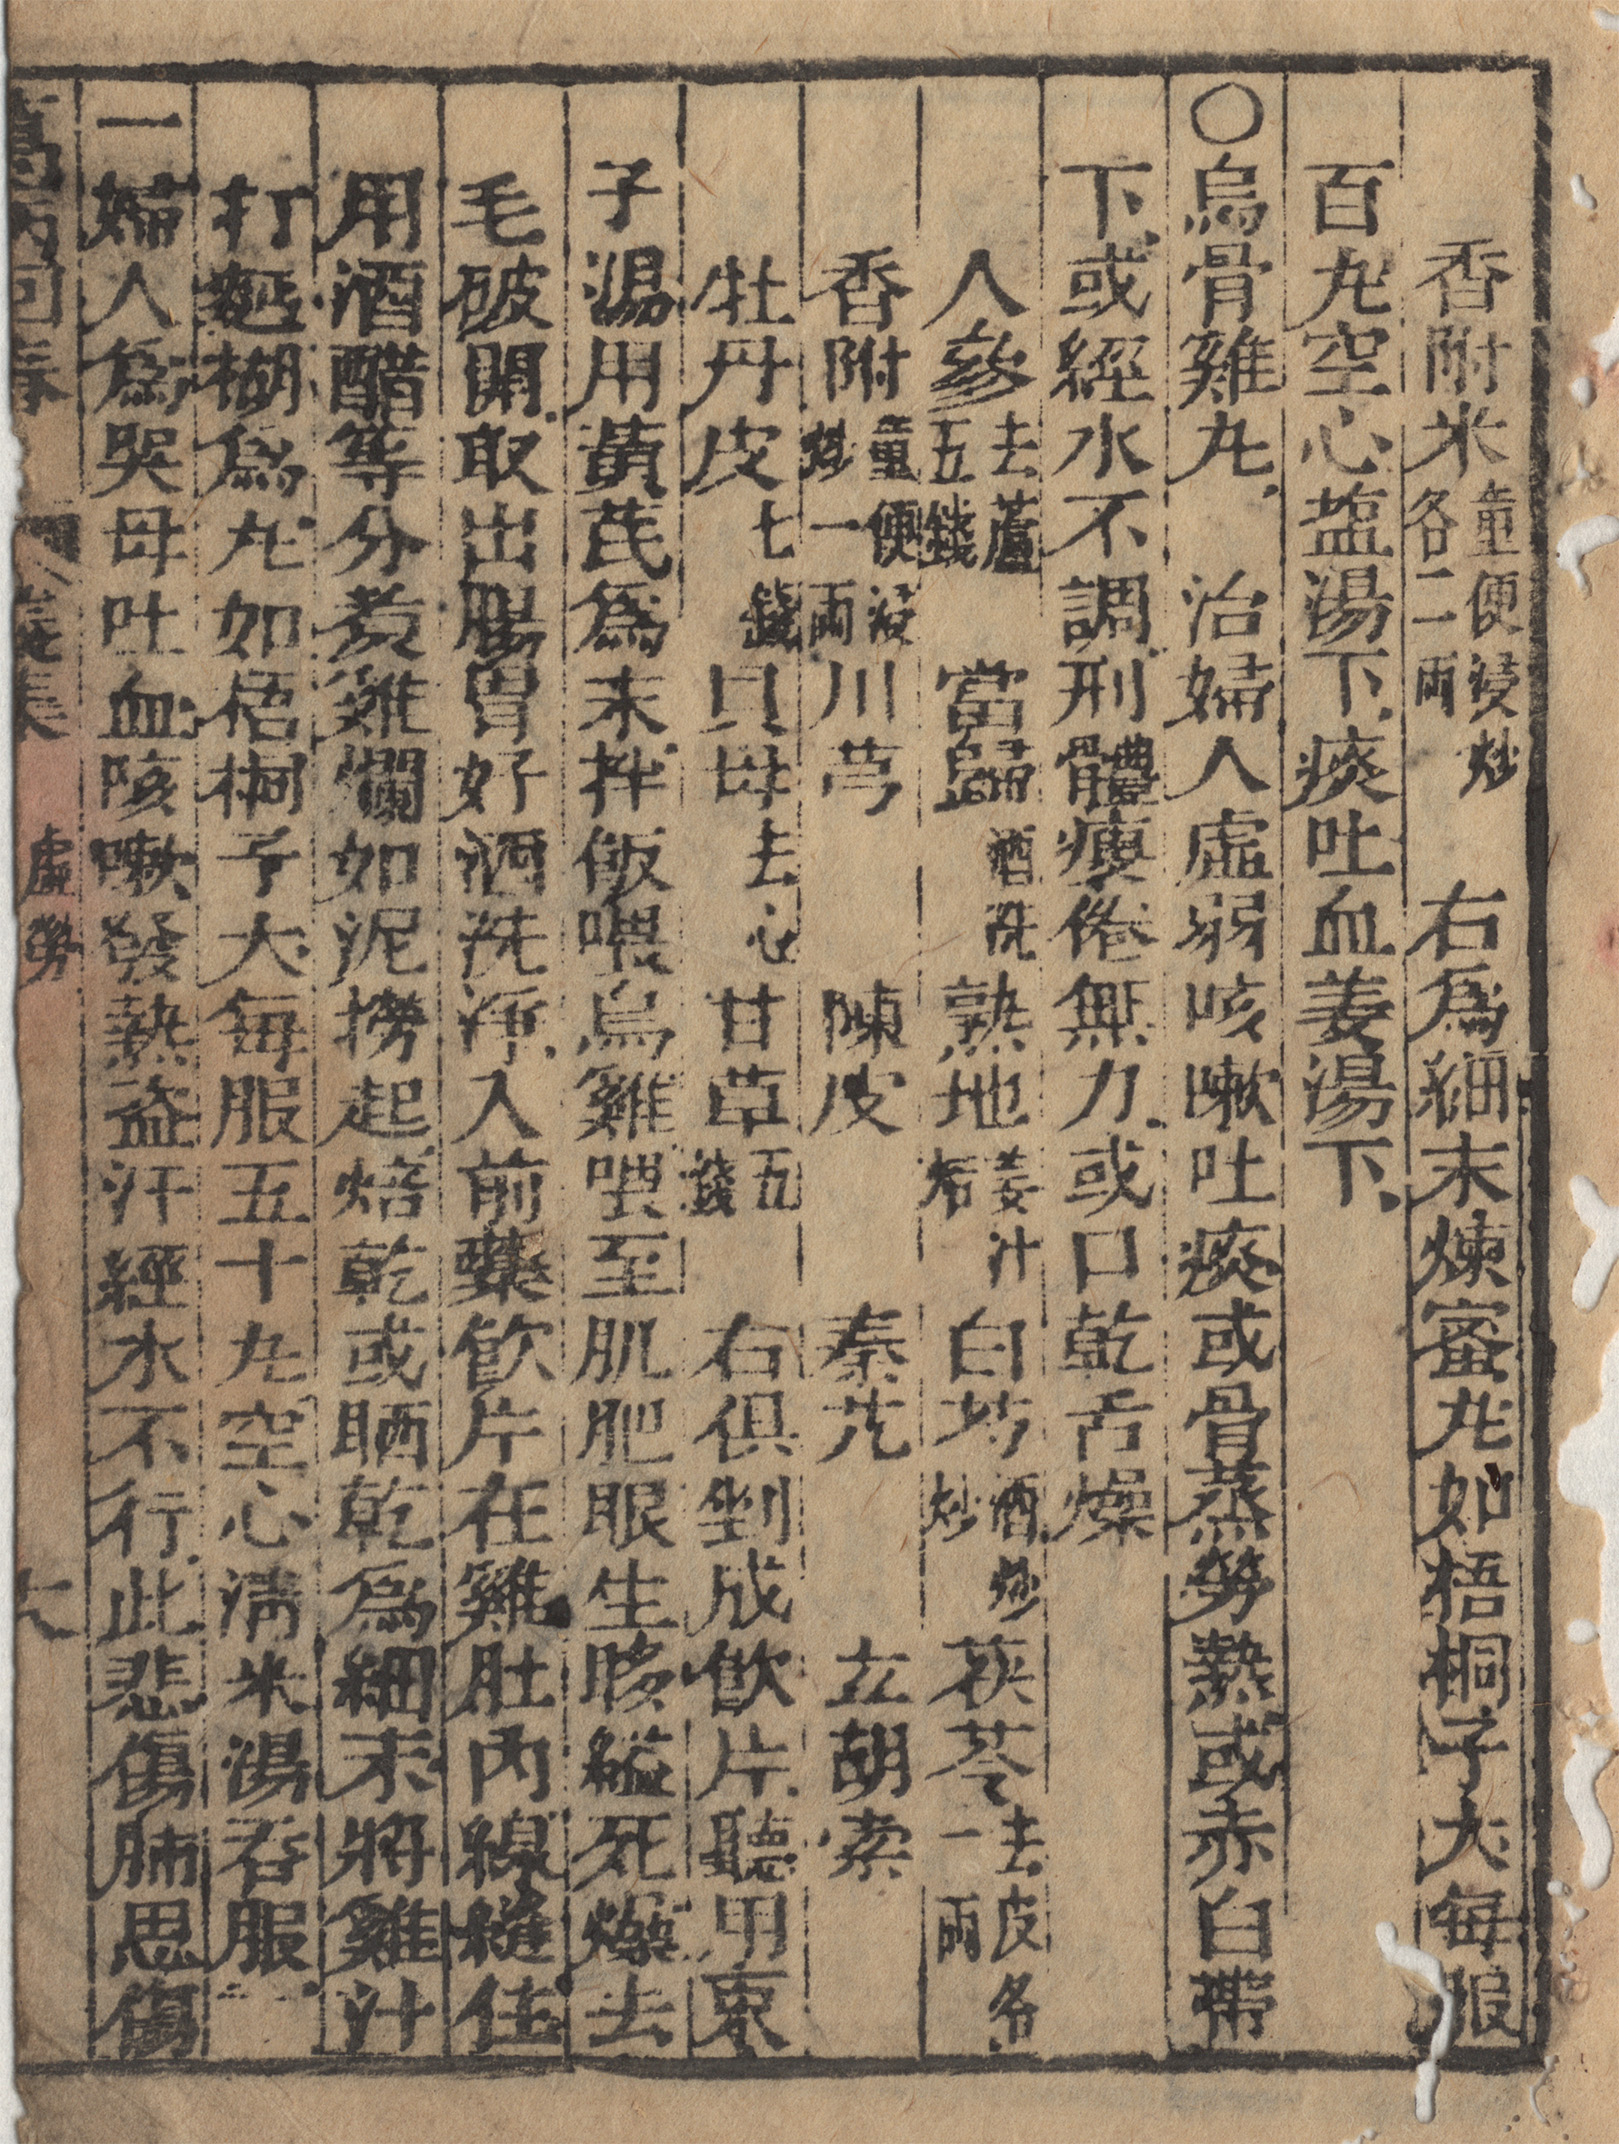 香附米童便浸炒各二兩 右爲細末煉蜜丸如梧桐子大每服
百丸空心塩湯下痰吐血姜湯下
〇烏骨雞丸 治婦人虛弱咳嗽吐痰或骨蒸勞熱或赤白帶
下或經水不調刑體瘦倦無力或口乾舌燥
人參去蘆五錢 當歸酒洗 熟地姜汁 白芍酒炒炒 茯苓去皮各一兩
香附童便浸炒一兩 川芎 陳皮 秦艽 玄胡索
牡丹皮七錢 貝母去心 甘草五錢 右俱剉成飲片聽用東
子湯用黃芪爲末拌飯喂烏雞喂至肌肥眼生眵縊死燖去
毛破開取出腸胃好酒洗淨入前藥飲片在雞肚內線縫住
用酒醋等分煮雞爛如泥撈起焙乾或晒乾爲細末將雞汁
打麪糊爲丸如梧桐子大每服五十丸空心清米湯吞服
一婦人爲哭母吐血咳嗽發熱盜汗經水不行此悲傷肺思傷
萬病回春 集 虛勞 六